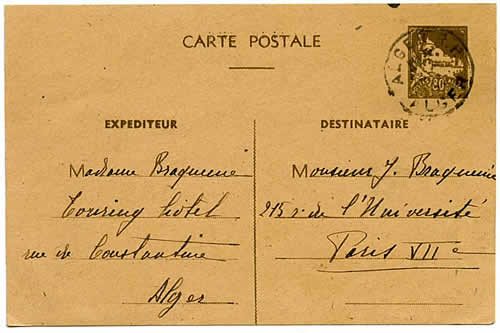 CARTE POSTALE
ALGER
ALGER
80
EXPEDITEUR
Madame Braquenié
Touring hôtel
rue de Constantine
Alger
DESTINATAIRE
Monsieur J. Braquenié
215 r. de l'Université
Paris VIIe